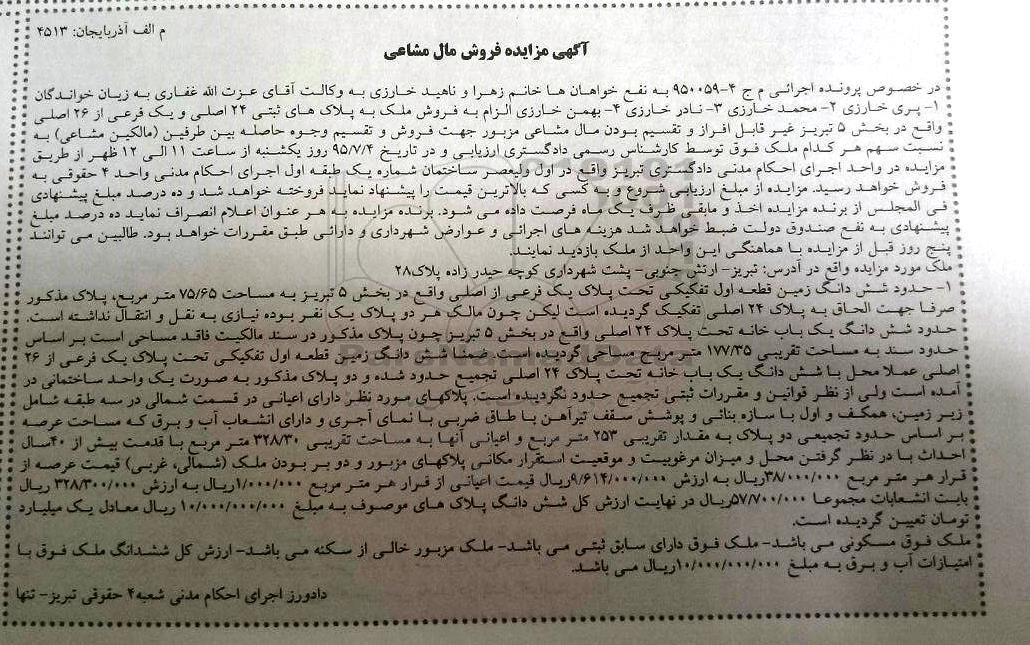 م الف آذربایجان: ۴۵۱۳
آگهی مزایده فروش مال مشاعی
در خصوص پرونده اجرائی م ج ۴-۹۵۰۰۵۹ به نفع خواهان ها خانم زهرا و ناهید خارزی به وکالت آقای عزت الله غفاری به زیان خواندگان
۱- پری خارزی ۲- محمد خارزی ۳- نادر خارزی ۴- بهمن خارزی الزام به فروش ملک به پلاک های ثبتی ۲۴ اصلی و یک فرعی از ۲۶ اصلی
واقع در بخش ۵ تبریز غیر قابل افراز و تقسیم بودن مال مشاعی مزبور جهت فروش و تقسیم وجوه حاصله بین طرفین (مالکین مشاعی) به
نسبت سهم هر کدام ملک فوق توسط کارشناس رسمی دادگستری ارزیابی و در تاریخ ۹۵/۷/۴ روز یکشنبه از ساعت ۱۱ الی ۱۲ ظهر از طریق
مزایده در واحد اجرای احکام مدنی دادگستری تبریز واقع در اول ولیعصر ساختمان شماره یک طبقه اول اجرای احکام مدنی واحد ۴ حقوقی به
فروش خواهد رسید. مزایده از مبلغ ارزیابی شروع و به کسی که بالاترین قیمت را پیشنهاد نماید فروخته خواهد شد و ده درصد مبلغ پیشنهادی
فی المجلس از برنده مزایده اخذ و مابقی ظرف یک ماه فرصت داده می شود. برنده مزایده به هر عنوان اعلام انصراف نماید ده درصد مبلغ
پیشنهادی به نفع صندوق دولت ضبط خواهد شد هزینه های اجرائی و عوارض شهرداری و دارائی طبق مقررات خواهد بود. طالبین می توانند
پنج روز قبل از مزایده با هماهنگی این واحد از ملک بازدید نمایند.
ملک مورد مزایده واقع در آدرس: تبریز- ارتش جنوبی- پشت شهرداری کوچه حیدر زاده پلاک۲۸
۱- حدود شش دانگ زمین قطعه اول تفکیکی تحت پلاک یک فرعی از اصلی واقع در بخش ۵ تبریز به مساحت ۷۵/۶۵ متر مربع، پلاک مذکور
صرفا جهت الحاق به پلاک ۲۴ اصلی تفکیک گردیده است لیکن چون مالک هر دو پلاک یک نفر بوده نیازی به نقل و انتقال نداشته است.
حدود شش دانگ یک باب خانه تحت پلاک ۲۴ اصلی واقع در بخش ۵ تبریز چون پلاک مذکور در سند مالکیت فاقد مساحی است بر اساس
حدود سند به مساحت تقریبی ۱۷۷/۳۵ متر مربع مساحی گردیده است. ضمنا شش دانگ زمین قطعه اول تفکیکی تحت پلاک یک فرعی از ۲۶
اصلی عملا محل با شش دانگ یک باب خانه تحت پلاک ۲۴ اصلی تجمیع حدود شده و دو پلاک مذکور به صورت یک واحد ساختمانی در
آمده است ولی از نظر قوانین و مقررات ثبتی تجمیع حدود نگردیده است. پلاکهای مورد نظر دارای اعیانی در قسمت شمالی در سه طبقه شامل
زیر زمین، همکف و اول با سازه بنائی و پوشش سقف تیرآهن با طاق ضربی با نمای آجری و دارای انشعاب آب و برق که مساحت عرصه
بر اساس حدود تجمیعی دو پلاک به مقدار تقریبی ۲۵۳ متر مربع و اعیانی آنها به مساحت تقریبی ۳۲۸/۳۰ متر مربع با قدمت بیش از ۴۰سال
احداث با در نظر گرفتن محل و میزان مرغوبیت و موقعیت استقرار مکانی پلاکهای مزبور و دو بر بودن ملک (شمالی، غربی) قیمت عرصه از
قرار هر متر مربع ۳۸/۰۰۰/۰۰۰ریال به ارزش ۹/۶۱۴/۰۰۰/۰۰۰ریال قیمت اعیانی از قرار هر متر مربع ۱/۰۰۰/۰۰۰ریال به ارزش ۳۲۸/۳۰۰/۰۰۰ ریال
بابت انشعابات مجموعا ۵۷/۷۰۰/۰۰۰ریال در نهایت ارزش کل شش دانگ پلاک های موصوف به مبلغ ۱۰/۰۰۰/۰۰۰/۰۰۰ ریال معادل یک میلیارد
تومان تعیین گردیده است.
ملک فوق مسکونی می باشد- ملک فوق دارای سابق ثبتی می باشد- ملک مزبور خالی از سکنه می باشد- ارزش کل ششدانگ ملک فوق با
امتیازات آب و برق به مبلغ ۱۰/۰۰۰/۰۰۰/۰۰۰ریال می باشد.
دادورز اجرای احکام مدنی شعبه۴ حقوقی تبریز- تنها